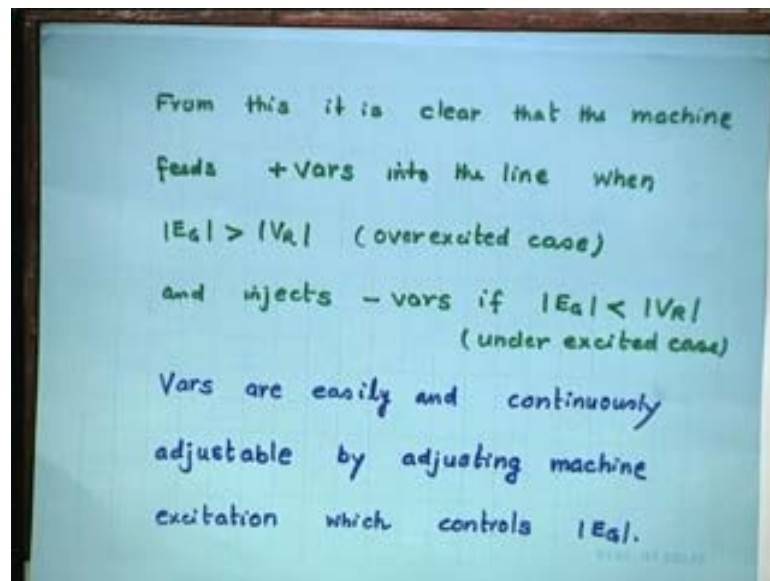 From this it is clear that the machine
feeds +Vars into the line when
|EG| > |VR| (overexcited case)
and injects - vars if |EG| < |VR|
(under excited case)
Vars are easily and continuously
adjustable by adjusting machine
excitation which controls |EG|.